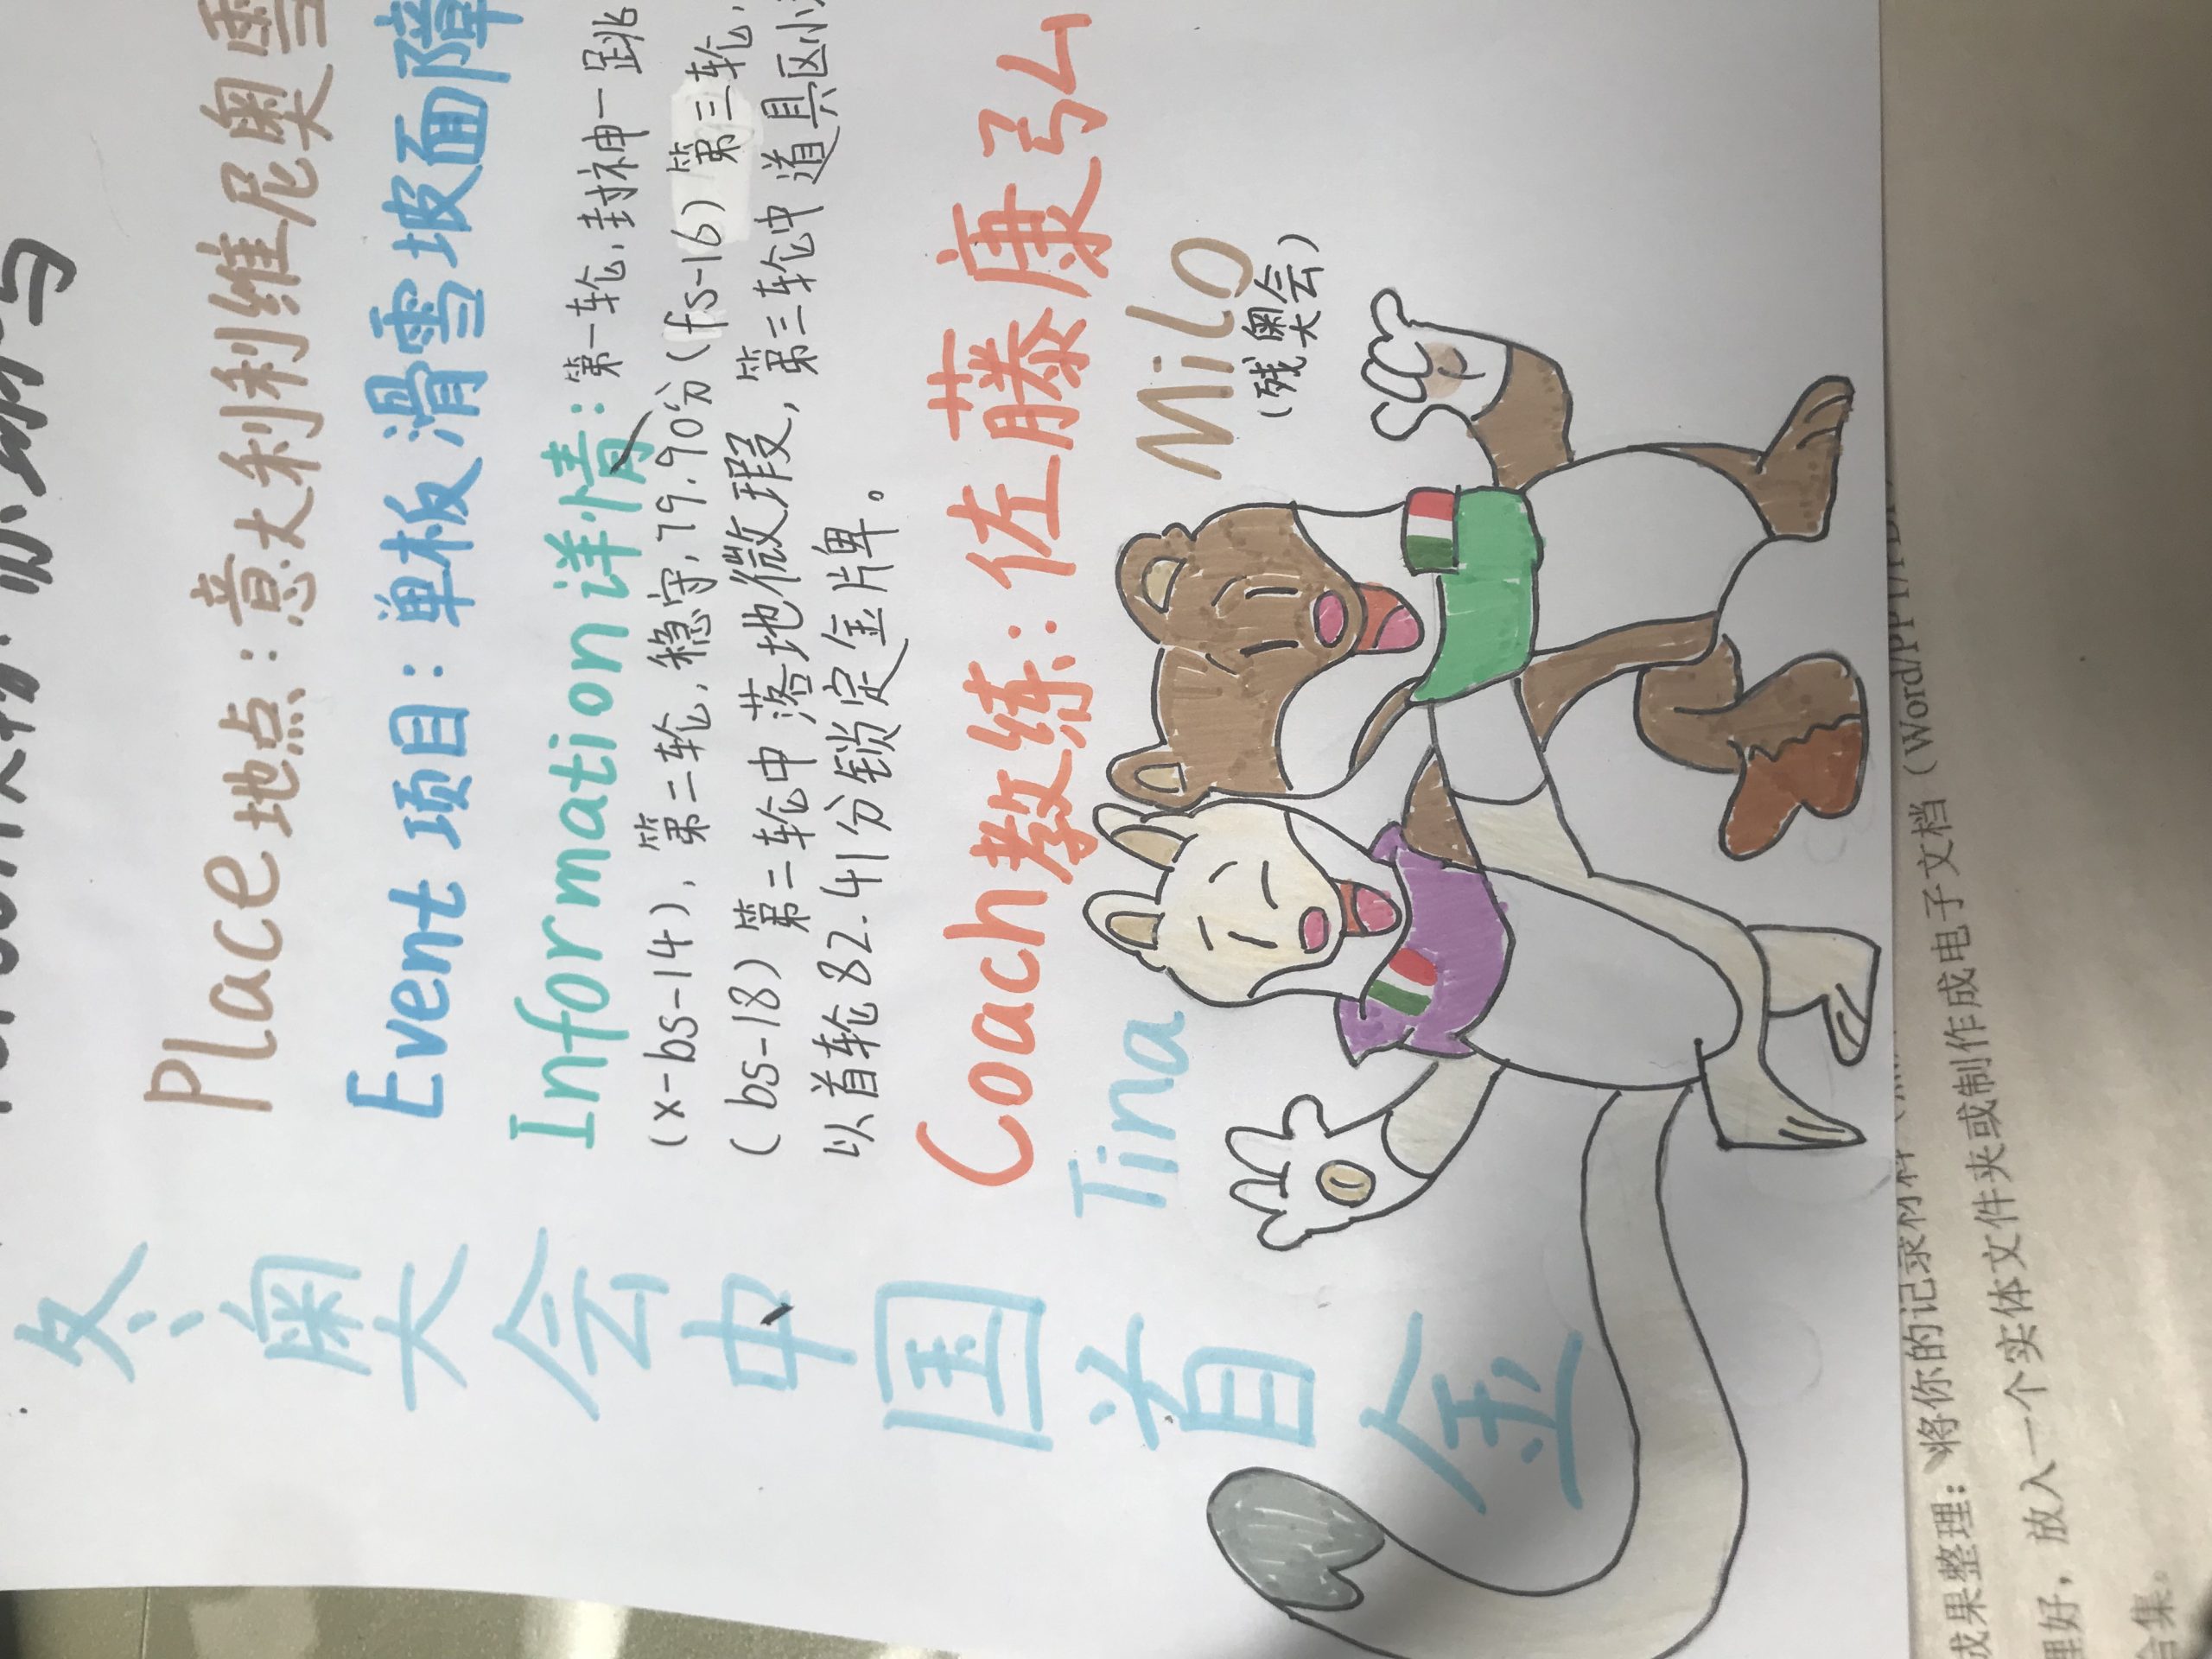 冬奥会中国首金
Place地点:意大利利维尼奥雪
Event项目:单板滑雪坡面障
Information详情:第一轮,封神一跳
(x-bs-14),第二轮,稳守,79.90分(fs-16)第三轮,
(bs-18)第二轮中落地微瑕,第三轮中道具区小
以首轮82.41分锁定金牌。
Coach教练:佐藤康弘
Tina
Milo
(残奥会)
成果整理:将你的记录材料
理好,放入一个实体文件夹或制作成电子文档(Word/PPT/PDF
合集。